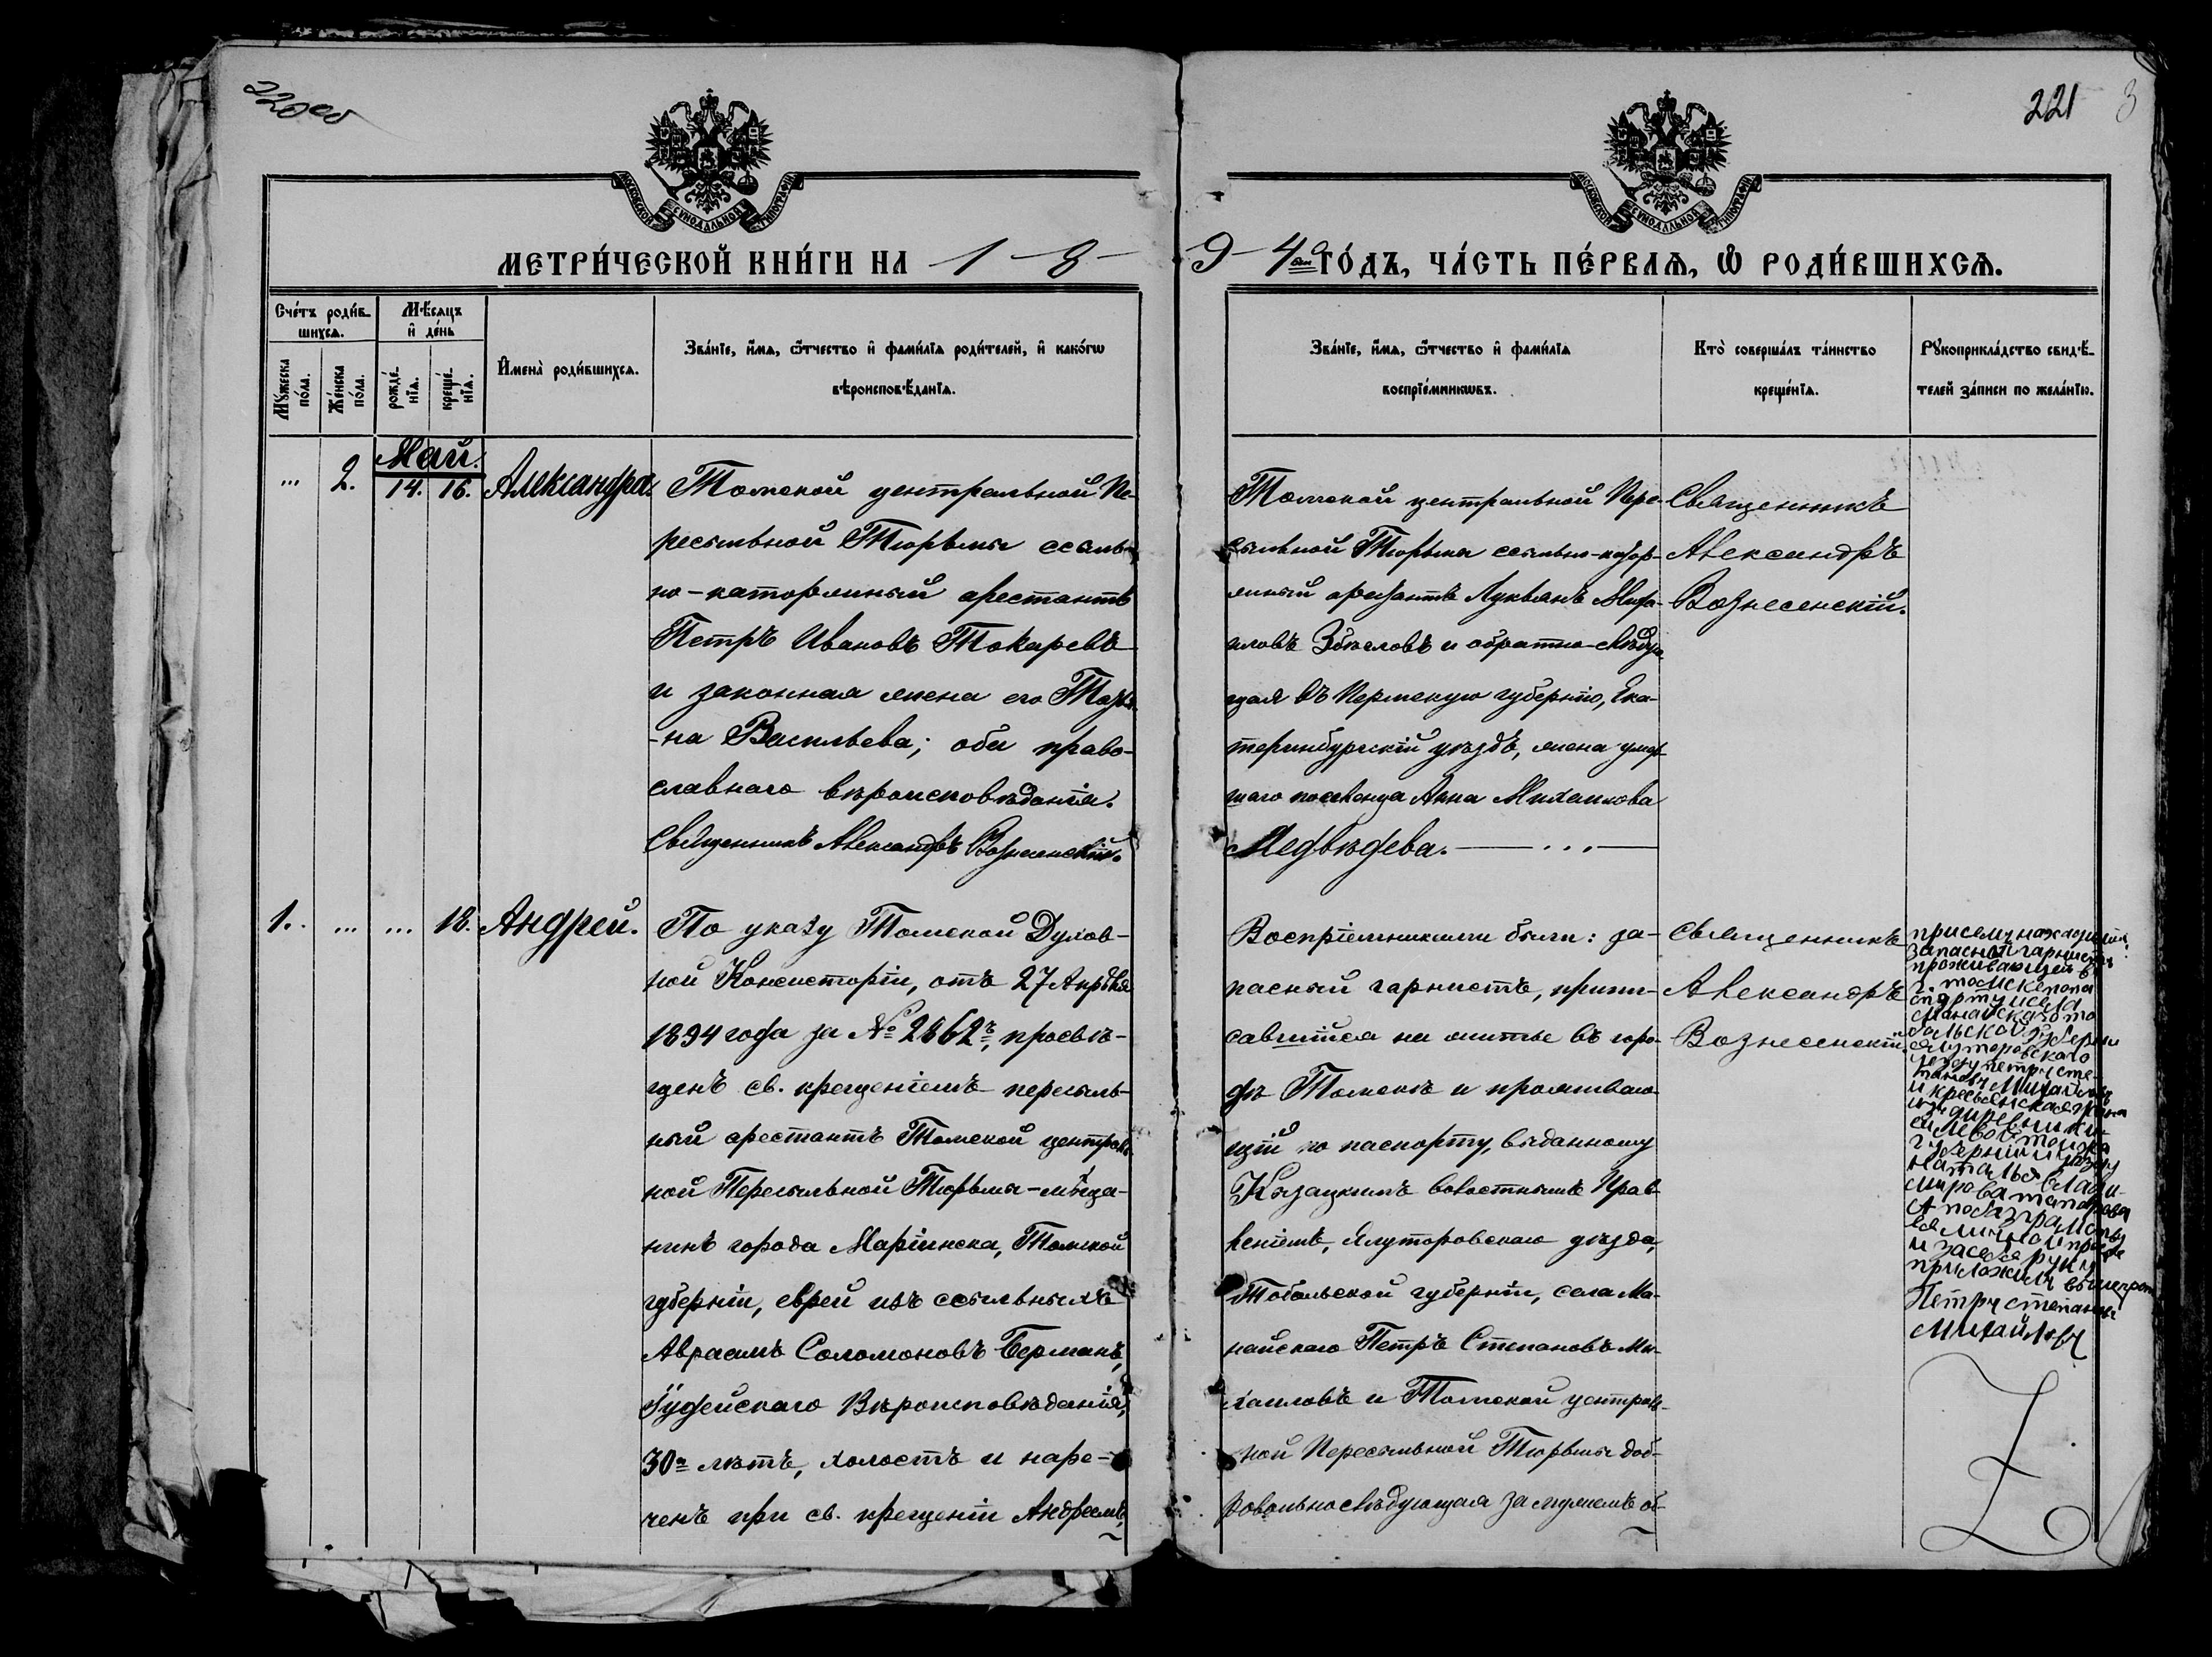 220 об
221
3
МОСКОВСКОЙ СѴНОДАЛЬНОЙ ТИПОГРАФІИ
МОСКОВСКОЙ СѴНОДАЛЬНОЙ ТИПОГРАФІИ
МЕТРИ́ЧЕСКОЙ КНИ́ГИ НА 1 - 8 -
9 - 4ый ГО́ДЪ, ЧА́СТЬ ПЕ́РВАѦ, Ѡ РОДИ́ВШИХСѦ.
Сче́тъ роди́в-
шихсѧ.
Мꙋ́жеска по́ла.
Же́нска по́ла.
Мѣ́сѧцъ
и҆ де́нь
рожде́-
нїѧ.
креще́-
нїѧ.
И҆мена̀ роди́вшихсѧ.
Зва́нїе, и҆́мѧ, ѻ҆́тчество и҆ фами́лїѧ роди́телей, и҆ како́гѡ
вѣроисповѣ́данїѧ.
Зва́нїе, и҆́мѧ, ѻ҆́тчество и҆ фами́лїѧ
воспрїе́мникѡвъ.
Кто̀ соверша́лъ та́инство
креще́нїѧ.
Рꙋкоприкла́дство свидѣ́-
телей за́писи по жела́нїю.
Май.
... 2. 14. 16. Александра.
Томской центральной Пе-
ресыльной Тюрьмы ссыль-
но-каторжный арестантъ
Петръ Ивановъ Токаревъ
и законная жена его Татья-
-на Васильева; оба право-
славнаго вѣроисповѣданія.
Священникъ Александръ Вознесенскій.
Томской центральной Пере-
сыльной Тюрьмы ссыльно-катор-
жный арестантъ Лукьянъ Миха-
иловъ и обратно-слѣдую-
щая въ Пермскую губернію, Ека-
теринбургскій уѣздъ, жена умер-
шаго поселенца Анна Михаилова
Медвѣдева. — ... —
Священникъ
Александръ
Вознесенскій.
1. ... ... 18. Андрей.
По указу Томской Духов-
ной Консисторіи, отъ 27 Апрѣля
1894 года за № 2862, просвѣ-
щенъ св. крещеніемъ пересыль-
ный арестантъ Томской централь-
ной Пересыльной Тюрьмы-мѣща-
нинъ города Маріинска, Томской
губерніи, еврей изъ ссыльныхъ
Авраамъ Соломоновъ Берманъ,
Іудейскаго Вѣроисповѣданія,
30 лѣтъ, холостъ и наре-
ченъ при св. крещеніи Андреемъ,
Воспріемниками были: за-
пасный гарнистъ, припи-
савшійся на житье въ горо-
дѣ Томскѣ и проживаю-
щій по паспорту, выданному
Казацкимъ волостнымъ Прав-
леніемъ, Ялуторовскаго уѣзда,
Тобольской губерніи, села Ма-
найскаго Петръ Степановъ Ми-
хаиловъ и Томской централь-
ной Пересыльной Тюрьмы доб-
ровольно слѣдующая за мужемъ об-
Священникъ
Александръ
Вознесенскій.
присемъ находился
запасный гарнистъ
проживающей в
г. томске по па
спорту села
Манайска то
бальской губернии
Ялуторовскаго
уезду петръ сте-
пановъ Михайловъ
и кресьянская жена
из диревни
томска
губернии
наталья влади-
мирова
А по
и за себя руку
приложилъ
Петръ степановъ
Михайловъ